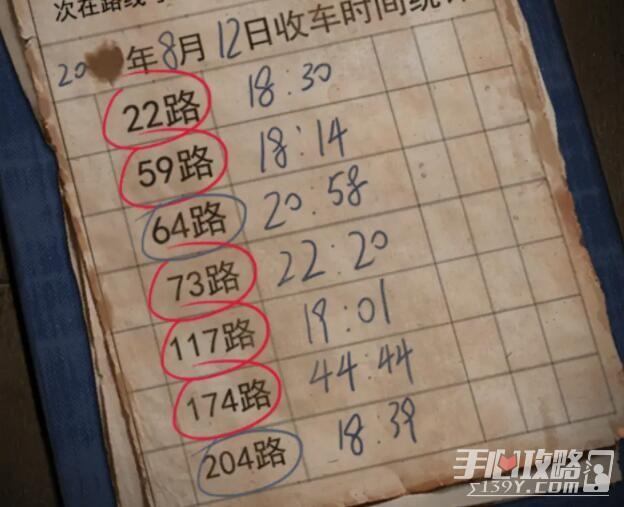 次在路线
20 年8月12日收车时间统计
22路 18:30
59路 18:14
64路 20:58
73路 22:20
117路 19:01
174路 44:44
204路 18:39
手心攻略
Y139Y.com